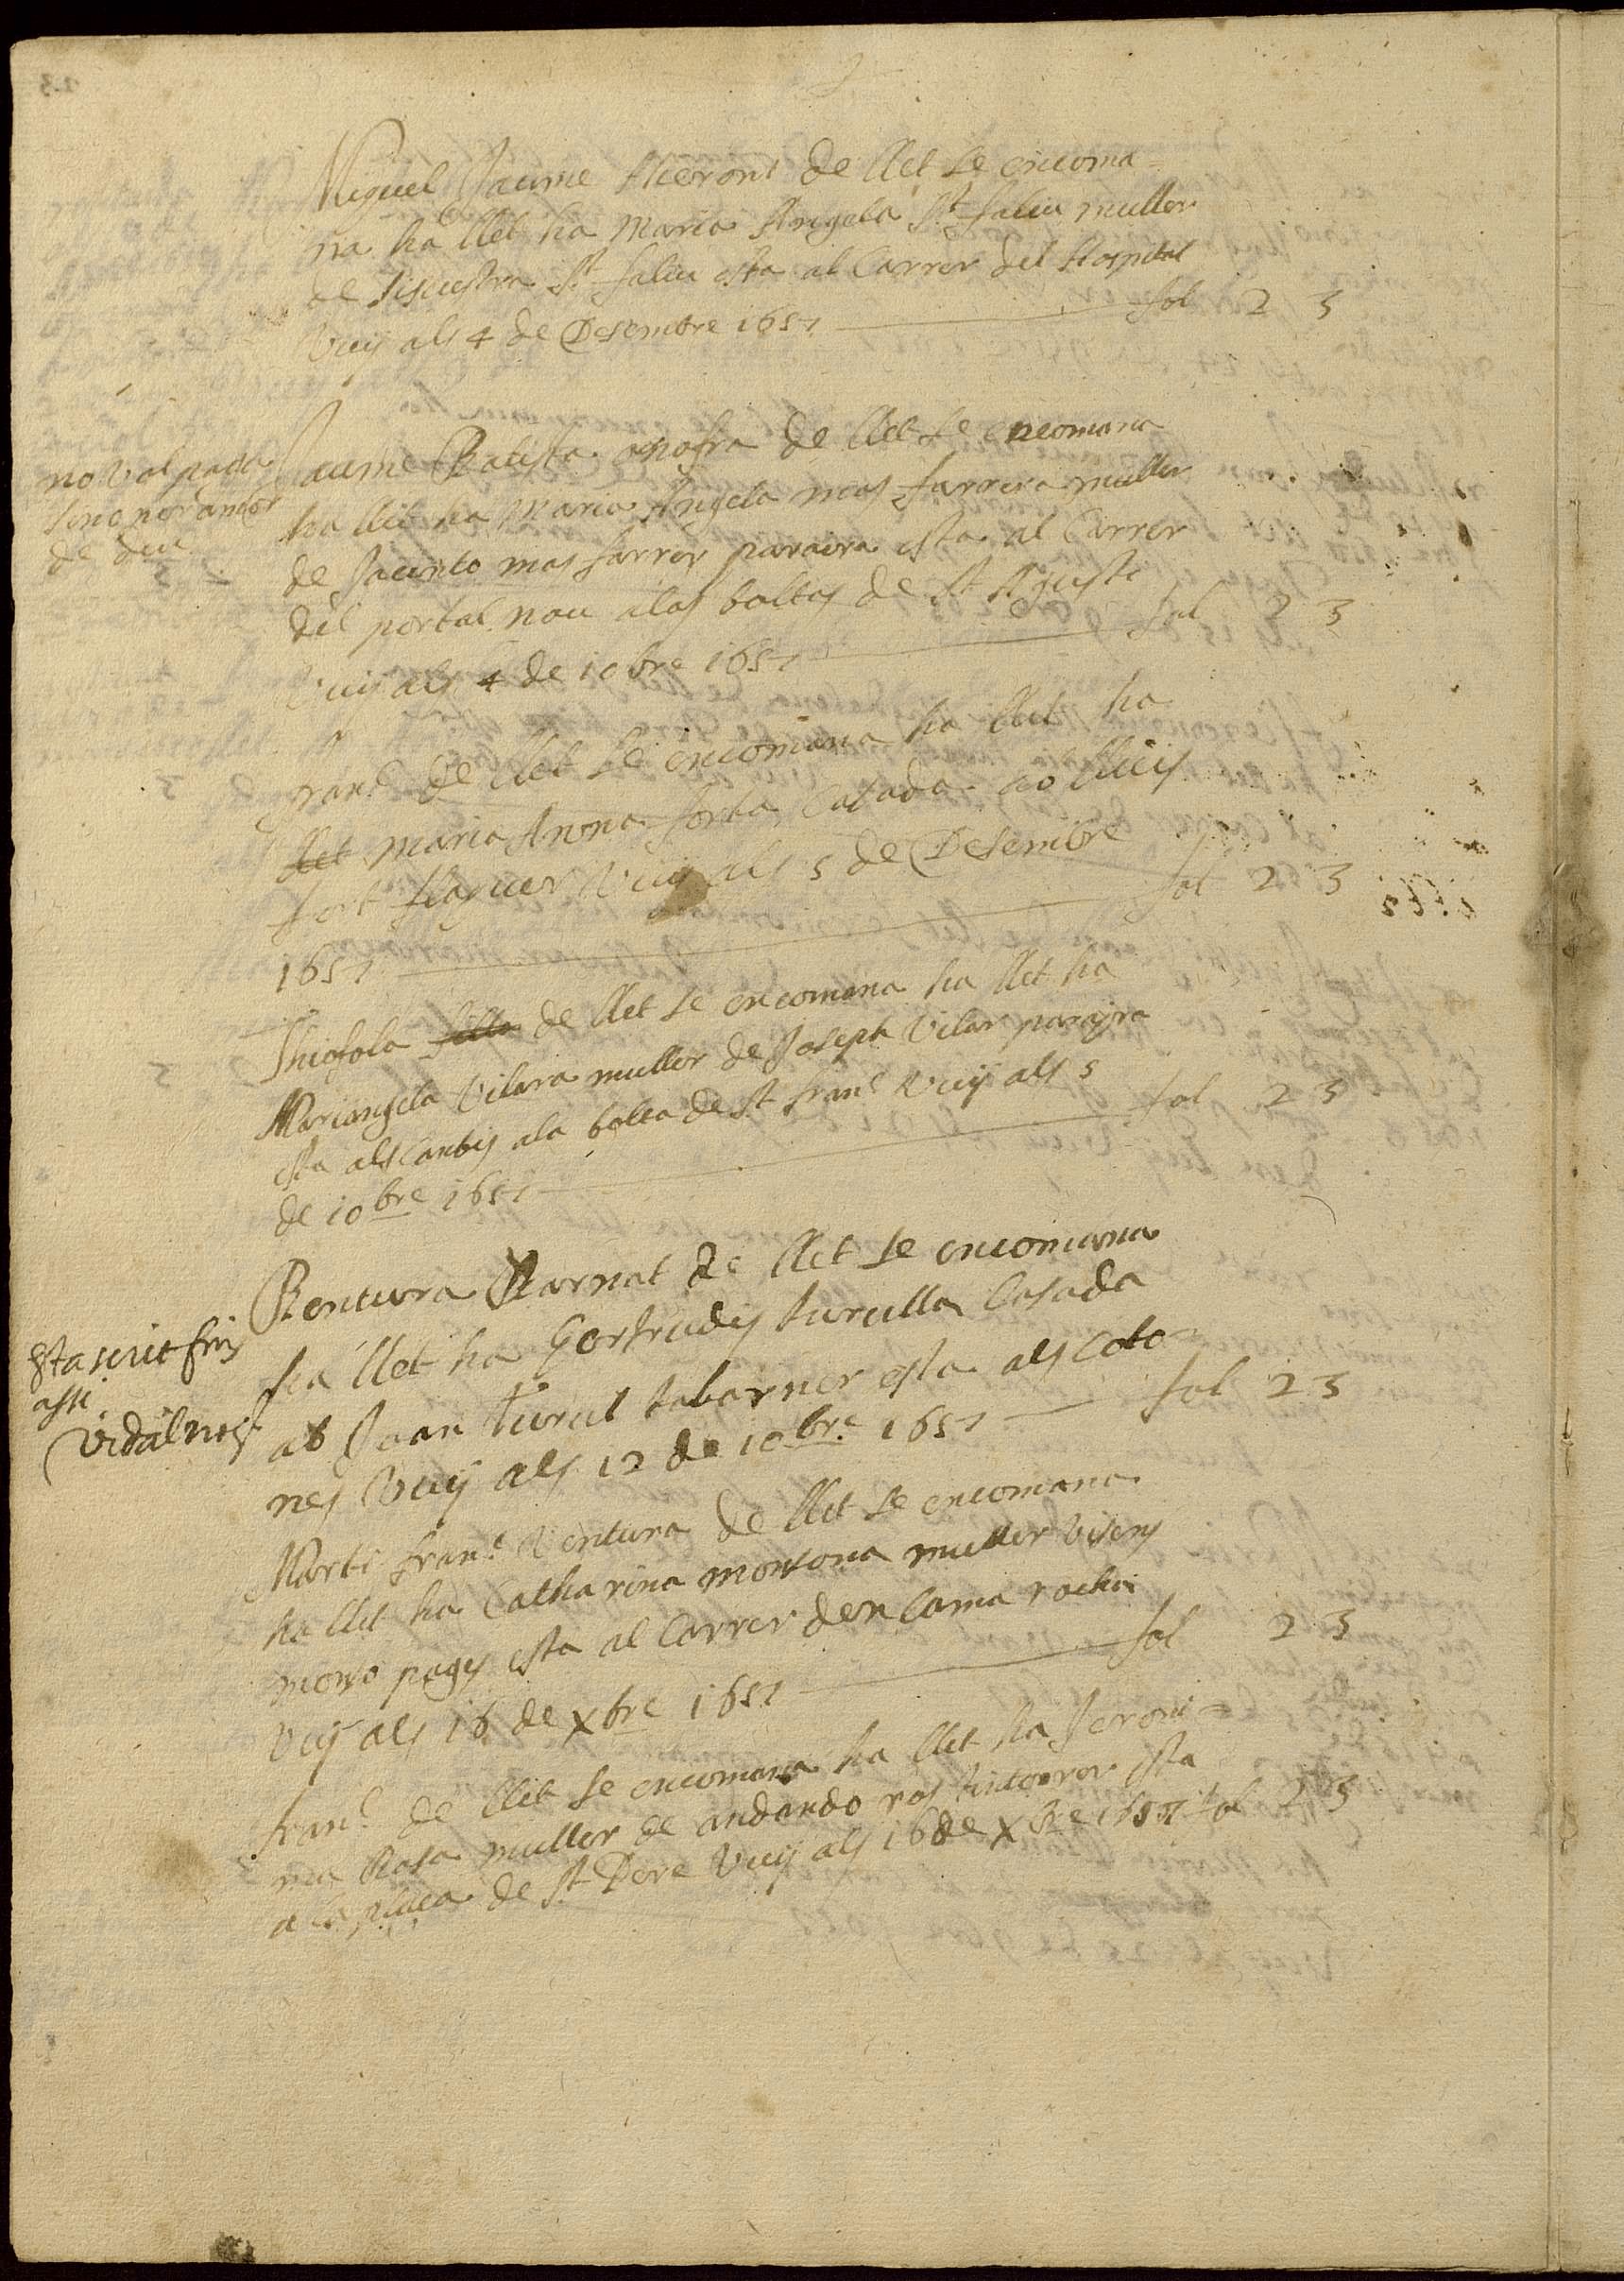 Miquel Jaume Hieroni de llet se encoma=
na ha llet ha Maria Angela St faliu muller
de St faliu esta al Carrer del Hospital
Vuÿ als 4 de Desembre 1657 fol 23
no val pada
sino per amor
de deu
Jaume Batista onofra de llet se encomana
ha llet ha Maria Angela mas farrera muller
de Jacinto mas farrer paraira esta al Carrer
del portal nou a las boltas de St Agusti
Vuÿ als 4 de 10bre 1657 fol 23
franc de llet se encomana ha llet ha
llet maria Anna forta Casada ab lluis
fort flaquer Vuÿ als 5 de Desembre
1657 fol 23
Thiofola filla de llet se encomana ha llet ha
Mariangela Vilara muller de Joseph Vilar paraÿra
esta als Canbis ala bolta de St franc Vuÿ als 5
de 10bre 1657 fol 23
Bentura Barnat de llet se encomana
ha llet ha Gertrudis turulla Casada
ab Joan turul tabarner esta als Coto=
nes Vuÿ als 12 de 10bre 1657 fol 23
Esta scrit fins
assi
Vidal not
Marti franc Ventura de llet se encomana
ha llet ha Catharina monsona muller Visens
monso pages esta al Carrer den Cama rocha
Vuÿ als 16 de xbre 1657 fol 23
franc de llet se encomana ha llet ha Jeroni=
ma Rosa muller de andando ros tintorer esta
a la plaça de St Pere Vuÿ als 16 de xbre 1657 fol 23